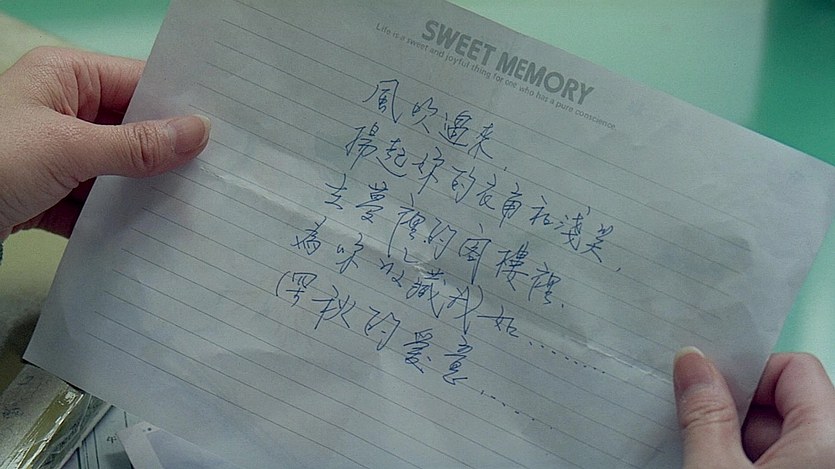 SWEET MEMORY
Life is a sweet and joyful thing for one who has a pure conscience.
風吹過來,
揚起妳的衣角和淺笑,
去夢裡的閣樓裡.
為妳收藏我如………
(深秋的愛意………